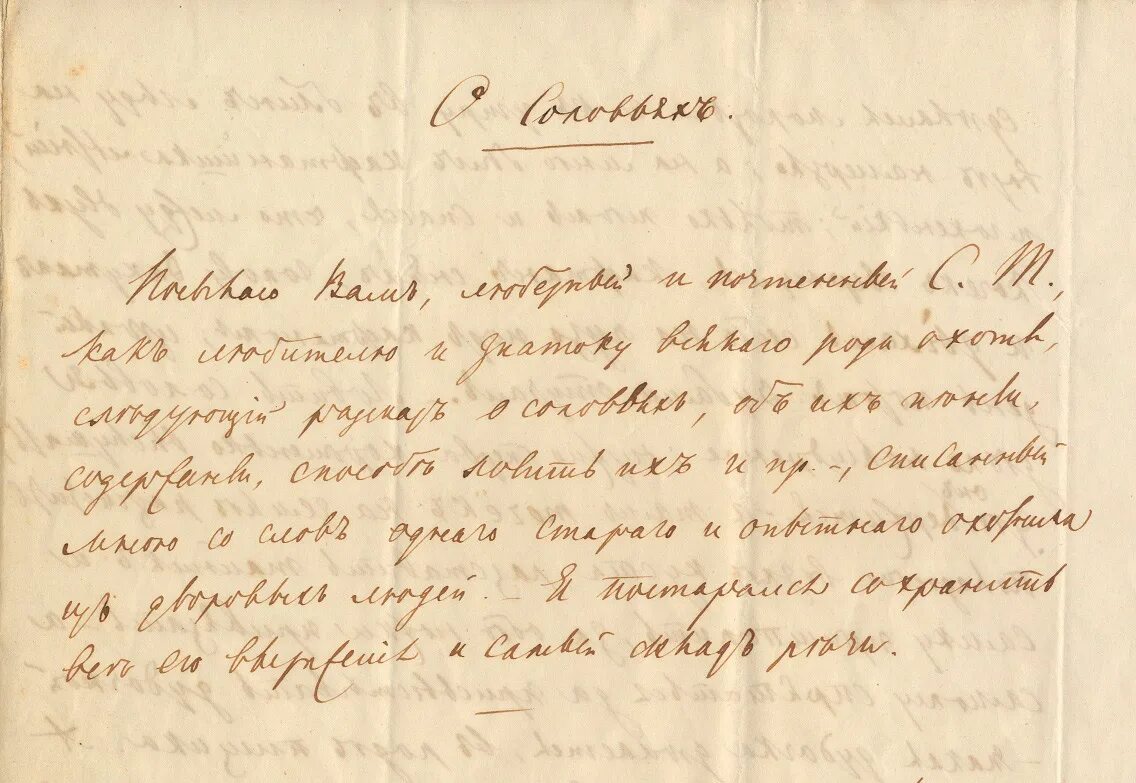 О Соловьяхъ.
Посылаю Вамъ, любезный и почтенный С. Т.,
какъ любителю и знатоку всякаго рода охотъ,
слѣдующій разсказъ о соловьяхъ, объ ихъ пѣніи,
содержаніи, способѣ ловить ихъ и пр. –, списанный
мною со словъ однаго стараго и опытнаго охотника
изъ дворовыхъ людей. – Я постарался сохранить
всѣ его выраженія и самый складъ рѣчи.